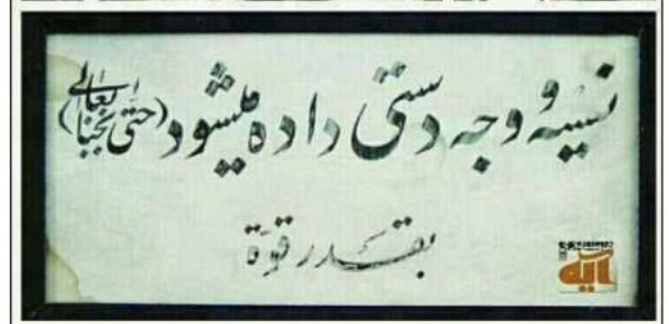 نسیه و وجه دستی داده میشود (حتی بجنابعالی)
بقدر قوّة
آیه